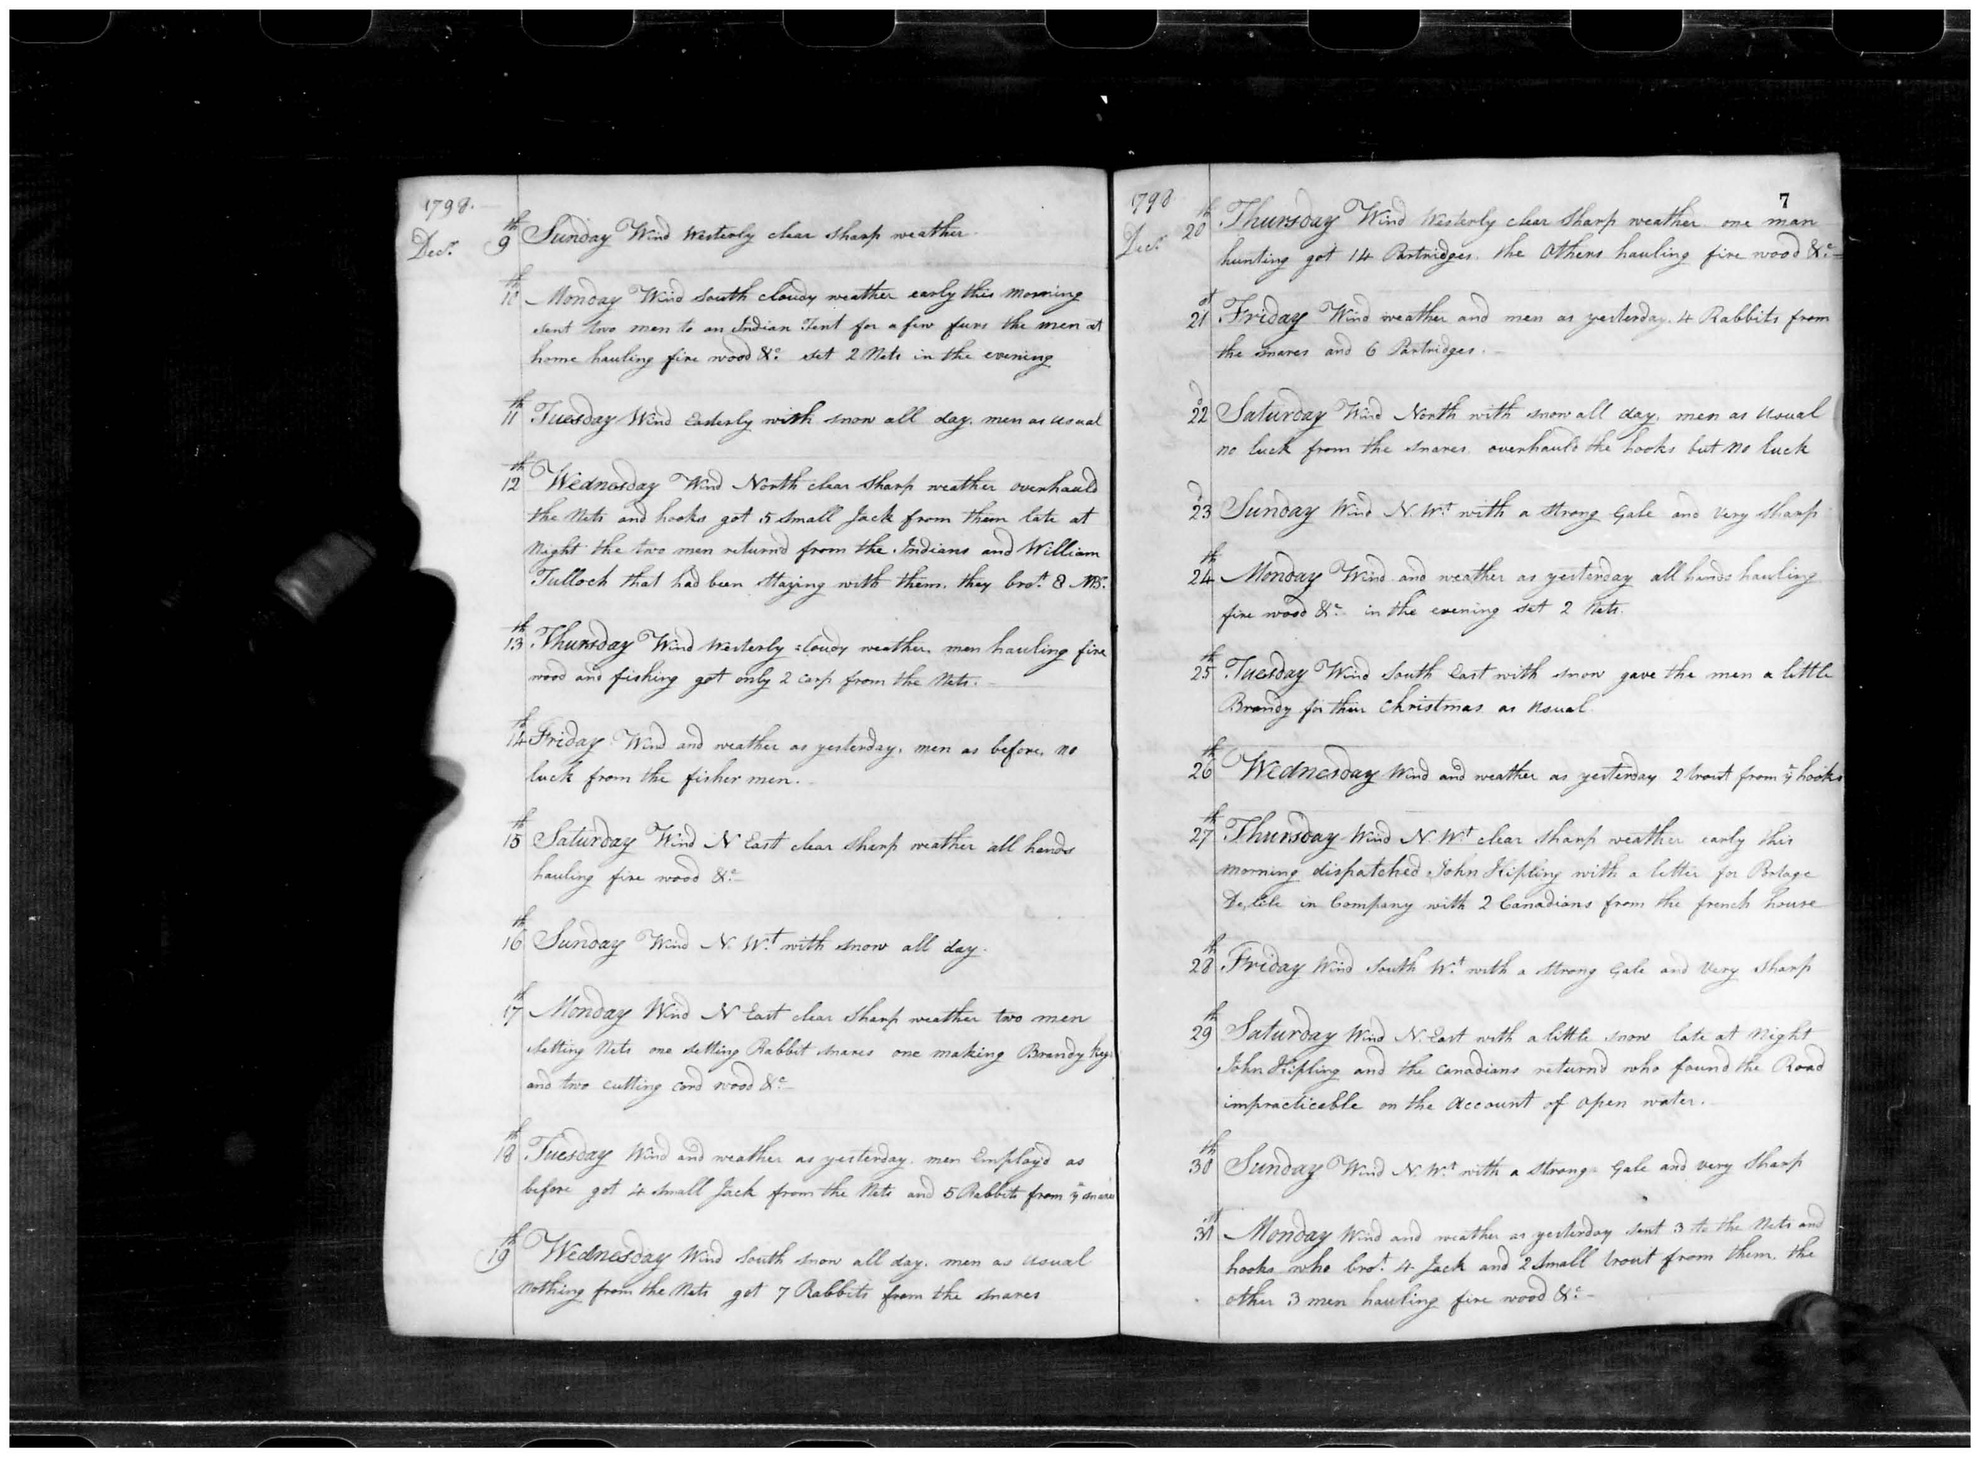 1798.
Decr. 9th Sunday Wind Westerly clear sharp weather.
10th Monday Wind South cloudy weather early this morning
sent two men to an Indian Tent for a few furs the men at
home hauling fire wood &c. set 2 Nets in the evening
11th Tuesday Wind Easterly with snow all day. men as usual
12th Wednesday Wind North clear sharp weather overhauld
the Nets and hooks got 5 small Jack from them late at
Night the two men returnd from the Indians and William
Tulloch that had been staying with them. they brot. 8 MBr.
13th Thursday Wind Westerly cloudy weather. men hauling fire
wood and fishing got only 2 carp from the Nets.
14th Friday Wind and weather as yesterday. men as before. no
luck from the fisher men.
15th Saturday Wind N East clear sharp weather all hands
hauling fire wood &c.
16th Sunday Wind N. Wt. with snow all day.
17th Monday Wind N East clear sharp weather two men
setting Nets one setting Rabbit snares one making Brandy kegs
and two cutting cord wood &c.
18th Tuesday Wind and weather as yesterday. men Employd as
before got 4 small Jack from the Nets and 5 Rabbits from ye snares
19th Wednesday Wind South snow all day. men as usual
Nothing from the Nets got 7 Rabbits from the snares
7
1798
Decr. 20th Thursday Wind Westerly clear sharp weather one man
hunting got 14 Partridges. the Others hauling fire wood &c.
21st Friday Wind weather and men as yesterday. 4 Rabbits from
the snares and 6 Partridges.
22d Saturday Wind North with snow all day. men as usual
no luck from the snares. overhauld the hooks but no luck
23d Sunday Wind N. Wt. with a strong Gale and very sharp
24th Monday Wind and weather as yesterday all hands hauling
fire wood &c. in the evening set 2 Nets.
25th Tuesday Wind South East with snow gave the men a little
Brandy for their Christmas as usual.
26th Wednesday Wind and weather as yesterday 2 trout from ye hooks
27th Thursday Wind N. Wt. clear sharp weather early this
morning dispatched John Kipling with a letter for Portage
De,lile in Company with 2 Canadians from the french house
28th Friday Wind South Wt. with a strong Gale and very sharp
29th Saturday Wind N. East with a little snow late at Night
John Kipling and the Canadians returnd who found the Road
impracticeble on the Account of open water.
30th Sunday Wind N. Wt. with a strong Gale and very sharp
31st Monday Wind and weather as yesterday sent 3 to the Nets and
hooks who brot. 4 Jack and 2 small trout from them. the
other 3 men hauling fire wood &c.